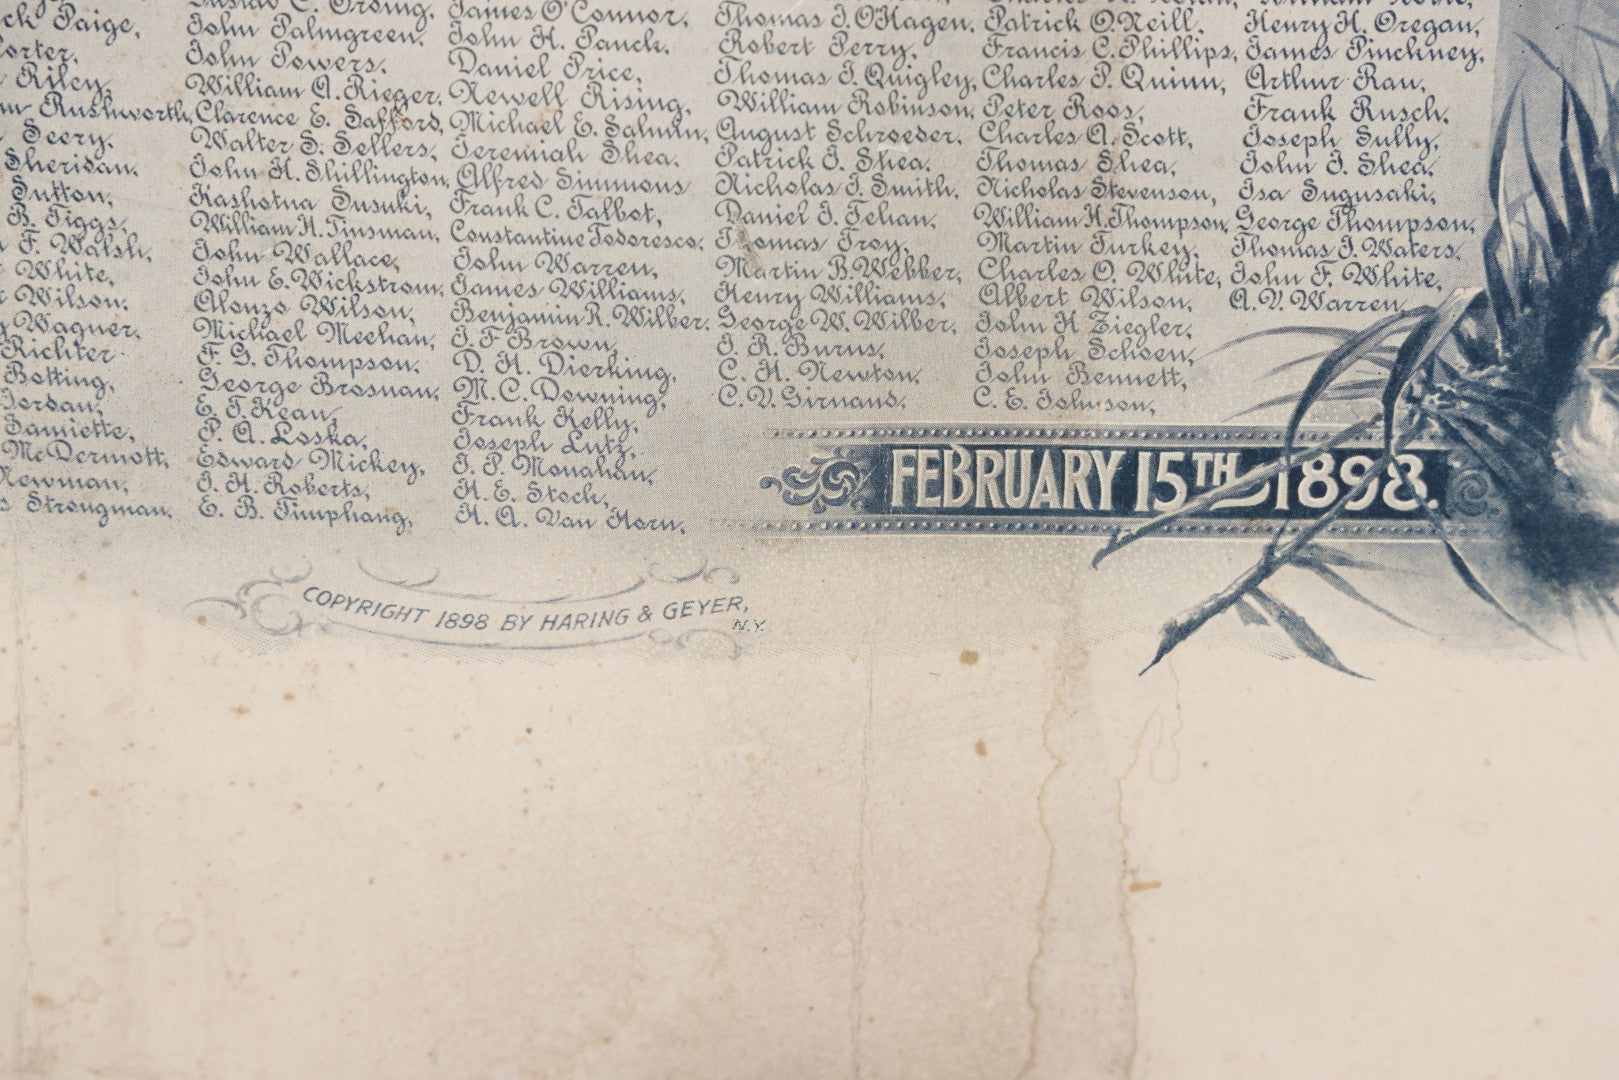 ck Paige,
orter,
Riley,
Rushworth,
Seery,
Sheridan,
Sutton,
B. Tiggs,
F. Walsh,
White,
Wilson,
Wagner,
Richter
Botting,
Jordan,
Jamiette,
McDermott,
Newman,
Strongman,
Gustav C. Ording,
John Palmgreen,
John Powers,
William A. Rieger,
Clarence E. Safford,
Walter S. Sellers,
John H. Shillington,
Kashotna Susuki,
William H. Tinsman,
John Wallace,
John E. Wickstrom,
Alonzo Wilson,
Michael Meehan,
F. G. Thompson,
George Brosnan,
E. T. Kean,
P. A. Loska,
Edward Mickey,
J. H. Roberts,
E. B. Timphang,
James O'Connor,
John H. Panck,
Daniel Price,
Newell Rising,
Michael E. Salmin,
Jeremiah Shea,
Alfred Simmons
Frank C. Talbot,
Constantine Todoresco,
John Warren,
James Williams,
Benjamin R. Wilber,
J. F. Brown,
D. H. Dierking,
M. C. Downing,
Frank Kelly,
Joseph Lutz,
J. P. Monahan,
H. E. Stock,
H. A. Van Horn,
Thomas J. O'Hagen,
Robert Perry,
Thomas J. Quigley,
William Robinson,
August Schroeder,
Patrick J. Shea,
Nicholas J. Smith,
Daniel J. Tehan,
Thomas Troy,
Martin B. Webber,
Henry Williams,
George W. Wilber,
J. R. Burns,
C. H. Newton,
C. V. Girnand,
Patrick O. Neill,
Francis C. Phillips,
Charles P. Quinn,
Peter Roos,
Charles A. Scott,
Thomas Shea,
Nicholas Stevenson,
William H. Thompson,
Martin Turkey,
Charles O. White,
Albert Wilson,
John H Ziegler,
Joseph Schoen,
John Bennett,
C. E. Johnson,
Henry H. Oregan,
James Pinchney,
Arthur Rau,
Frank Rusch,
Joseph Sully,
John J. Shea,
Isa Sugusaki,
George Thompson,
Thomas J. Waters,
John F. White,
A. V. Warren,
FEBRUARY 15TH 1898.
COPYRIGHT 1898 BY HARING & GEYER,
N.Y.